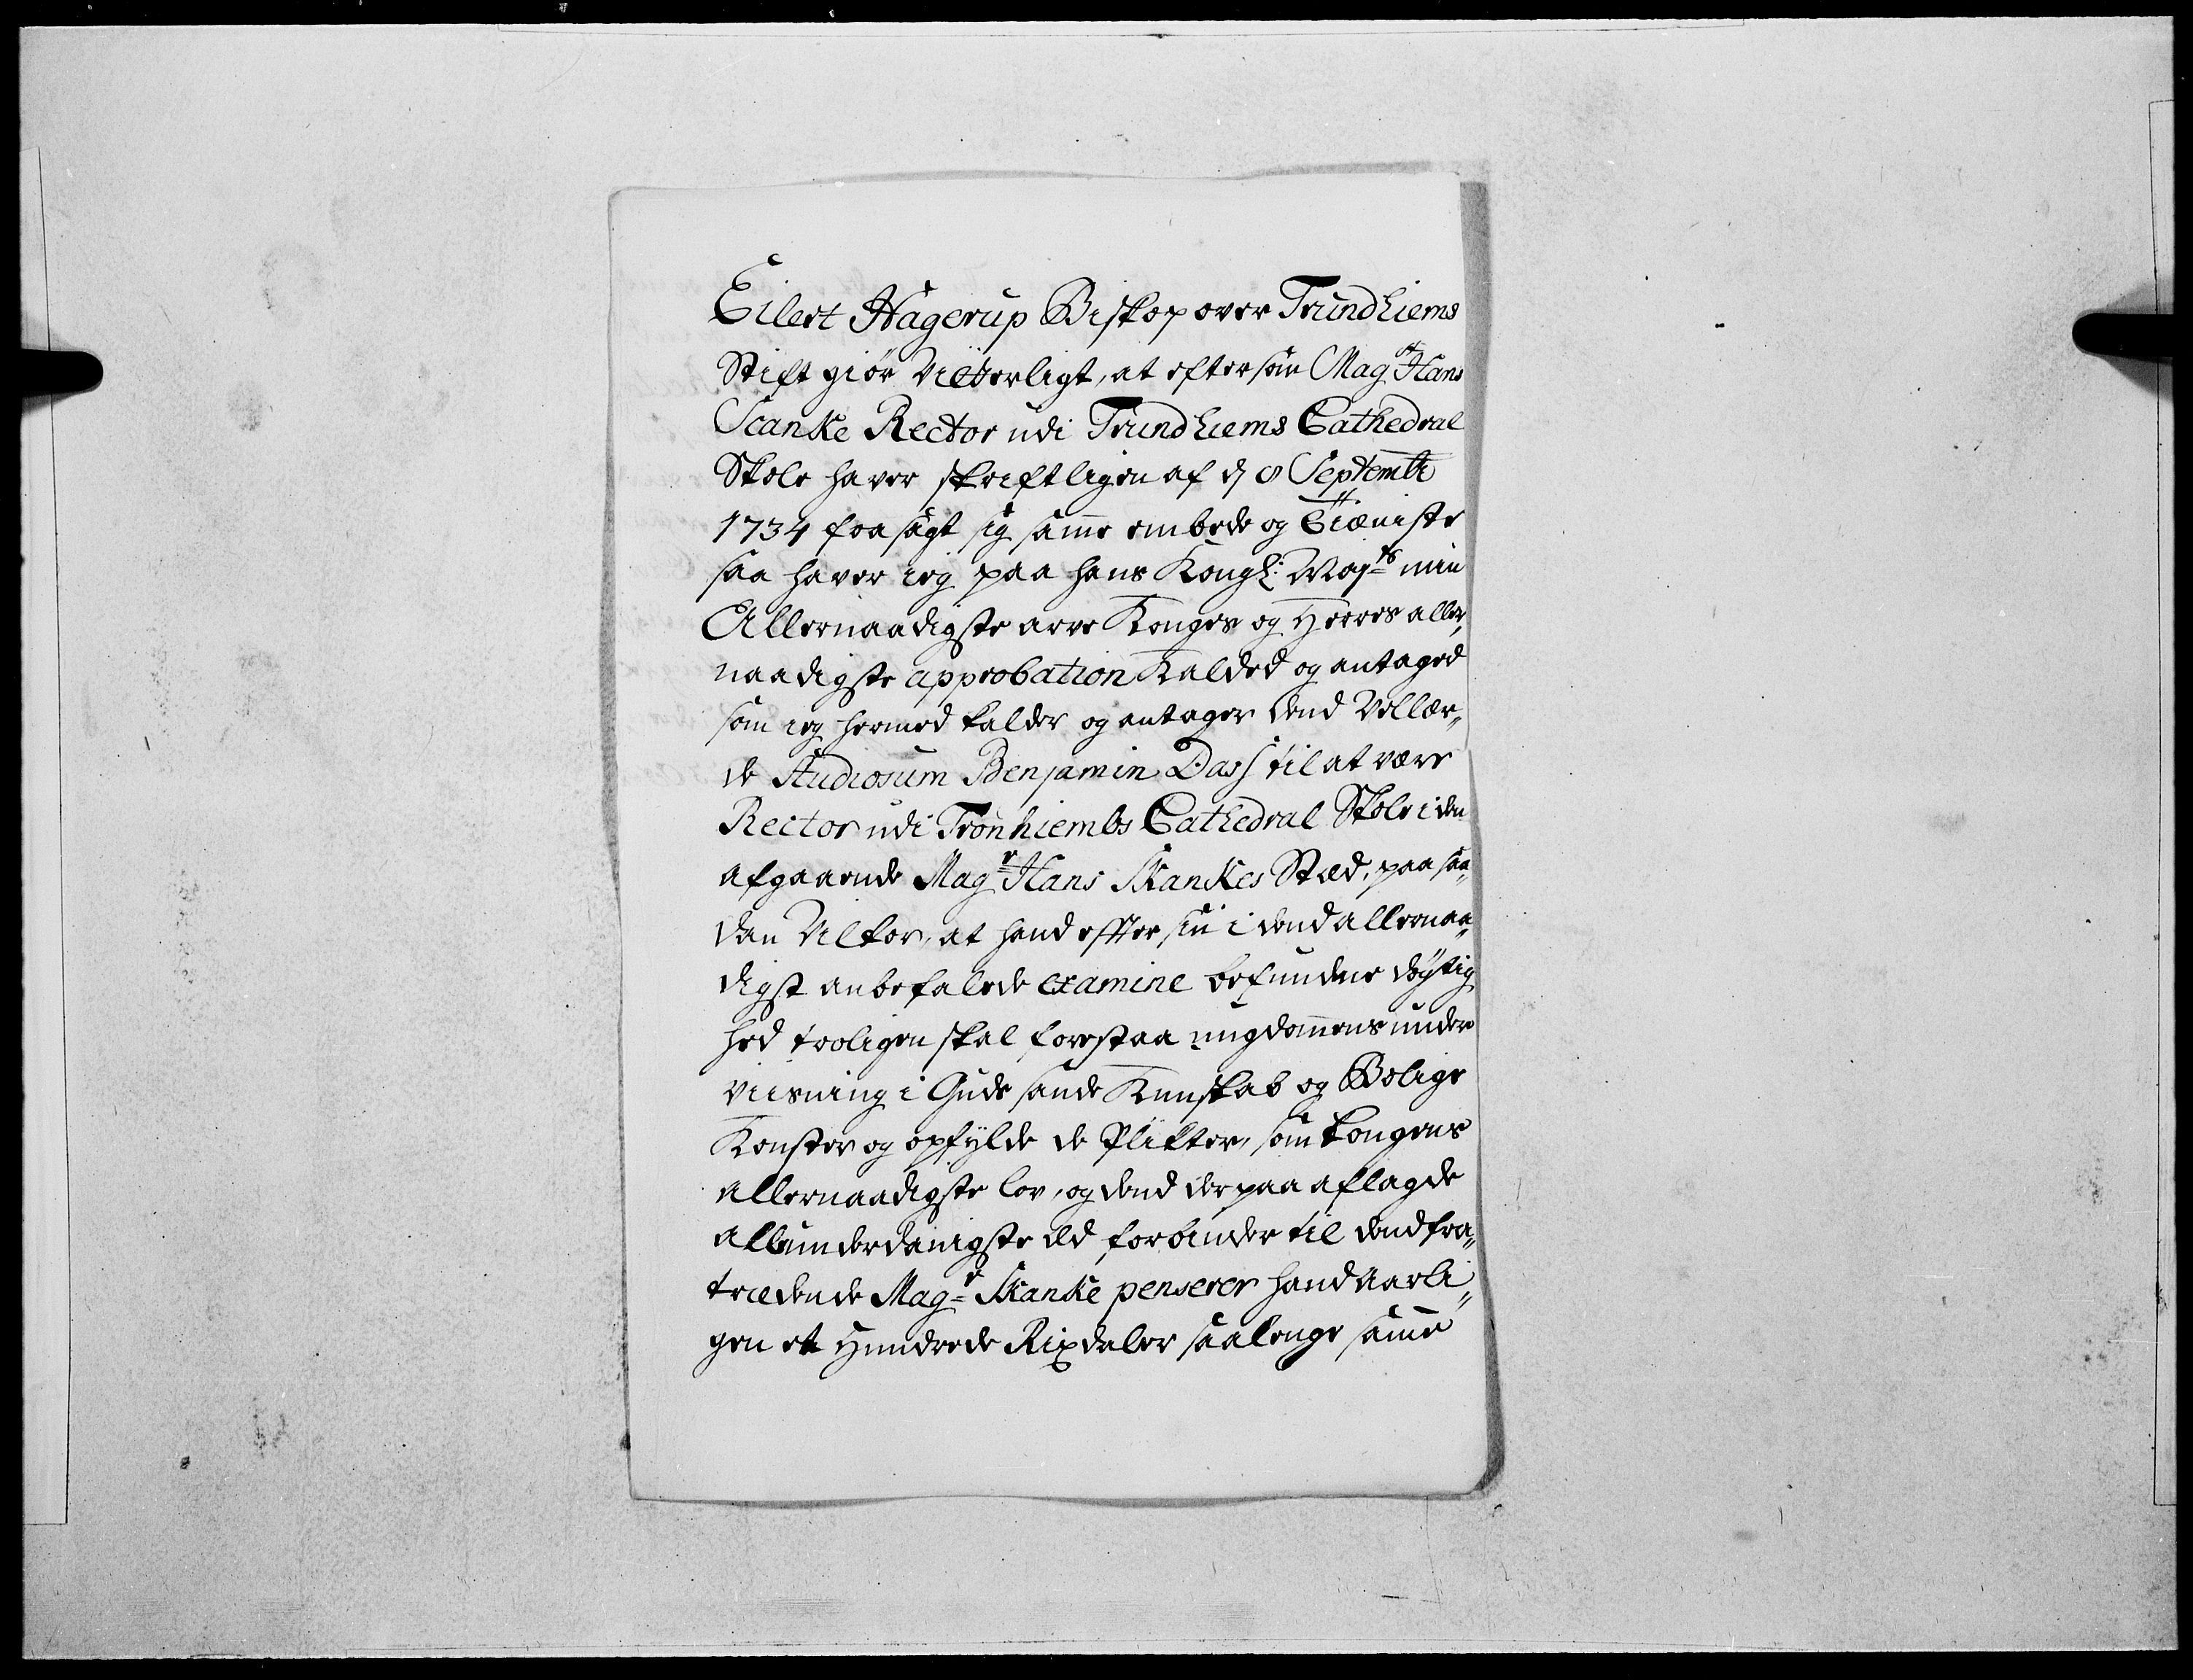 Eilert Hagerup Biskop over Trundhiems
Stift giør Vitterligt, at eftersom Magr Hans
Scanke Rector udi Trundhiems Cathedral
Skole haver skriftligen af d 8 Septembr
1734 fra sagt sig samme embede og Tieniste
saa haver ieg paa hans Kongl: Majts min
Allernaadigste arve Konges og Herres aller„
naadigste approbation Kaldet og antaget
som ieg hermed kalder og antager dend Vellær„
de Studiosum Benjamin Dass til at være
Rector udi Tronhiembs Cathedral Skole i den
afgaaende Magr Hans Skankes Sted, paa saa„
dan Vilkor, at hand efter sin i dend allernaa„
digst anbefalede examine befundne dygtig
hed troligen skal forestaa ungdommens under
viisning i Guds sande Kunskab og Bolige
Konster og opfylde de Plikter, som Kongens
allernaadigste lov, og dend derpaa aflagde
allerunderdanigste æd forbinder til dend fra„
trædende Magr Skanke penserer hand aarli„
gen et Hundrede Rixdaler saalenge samme